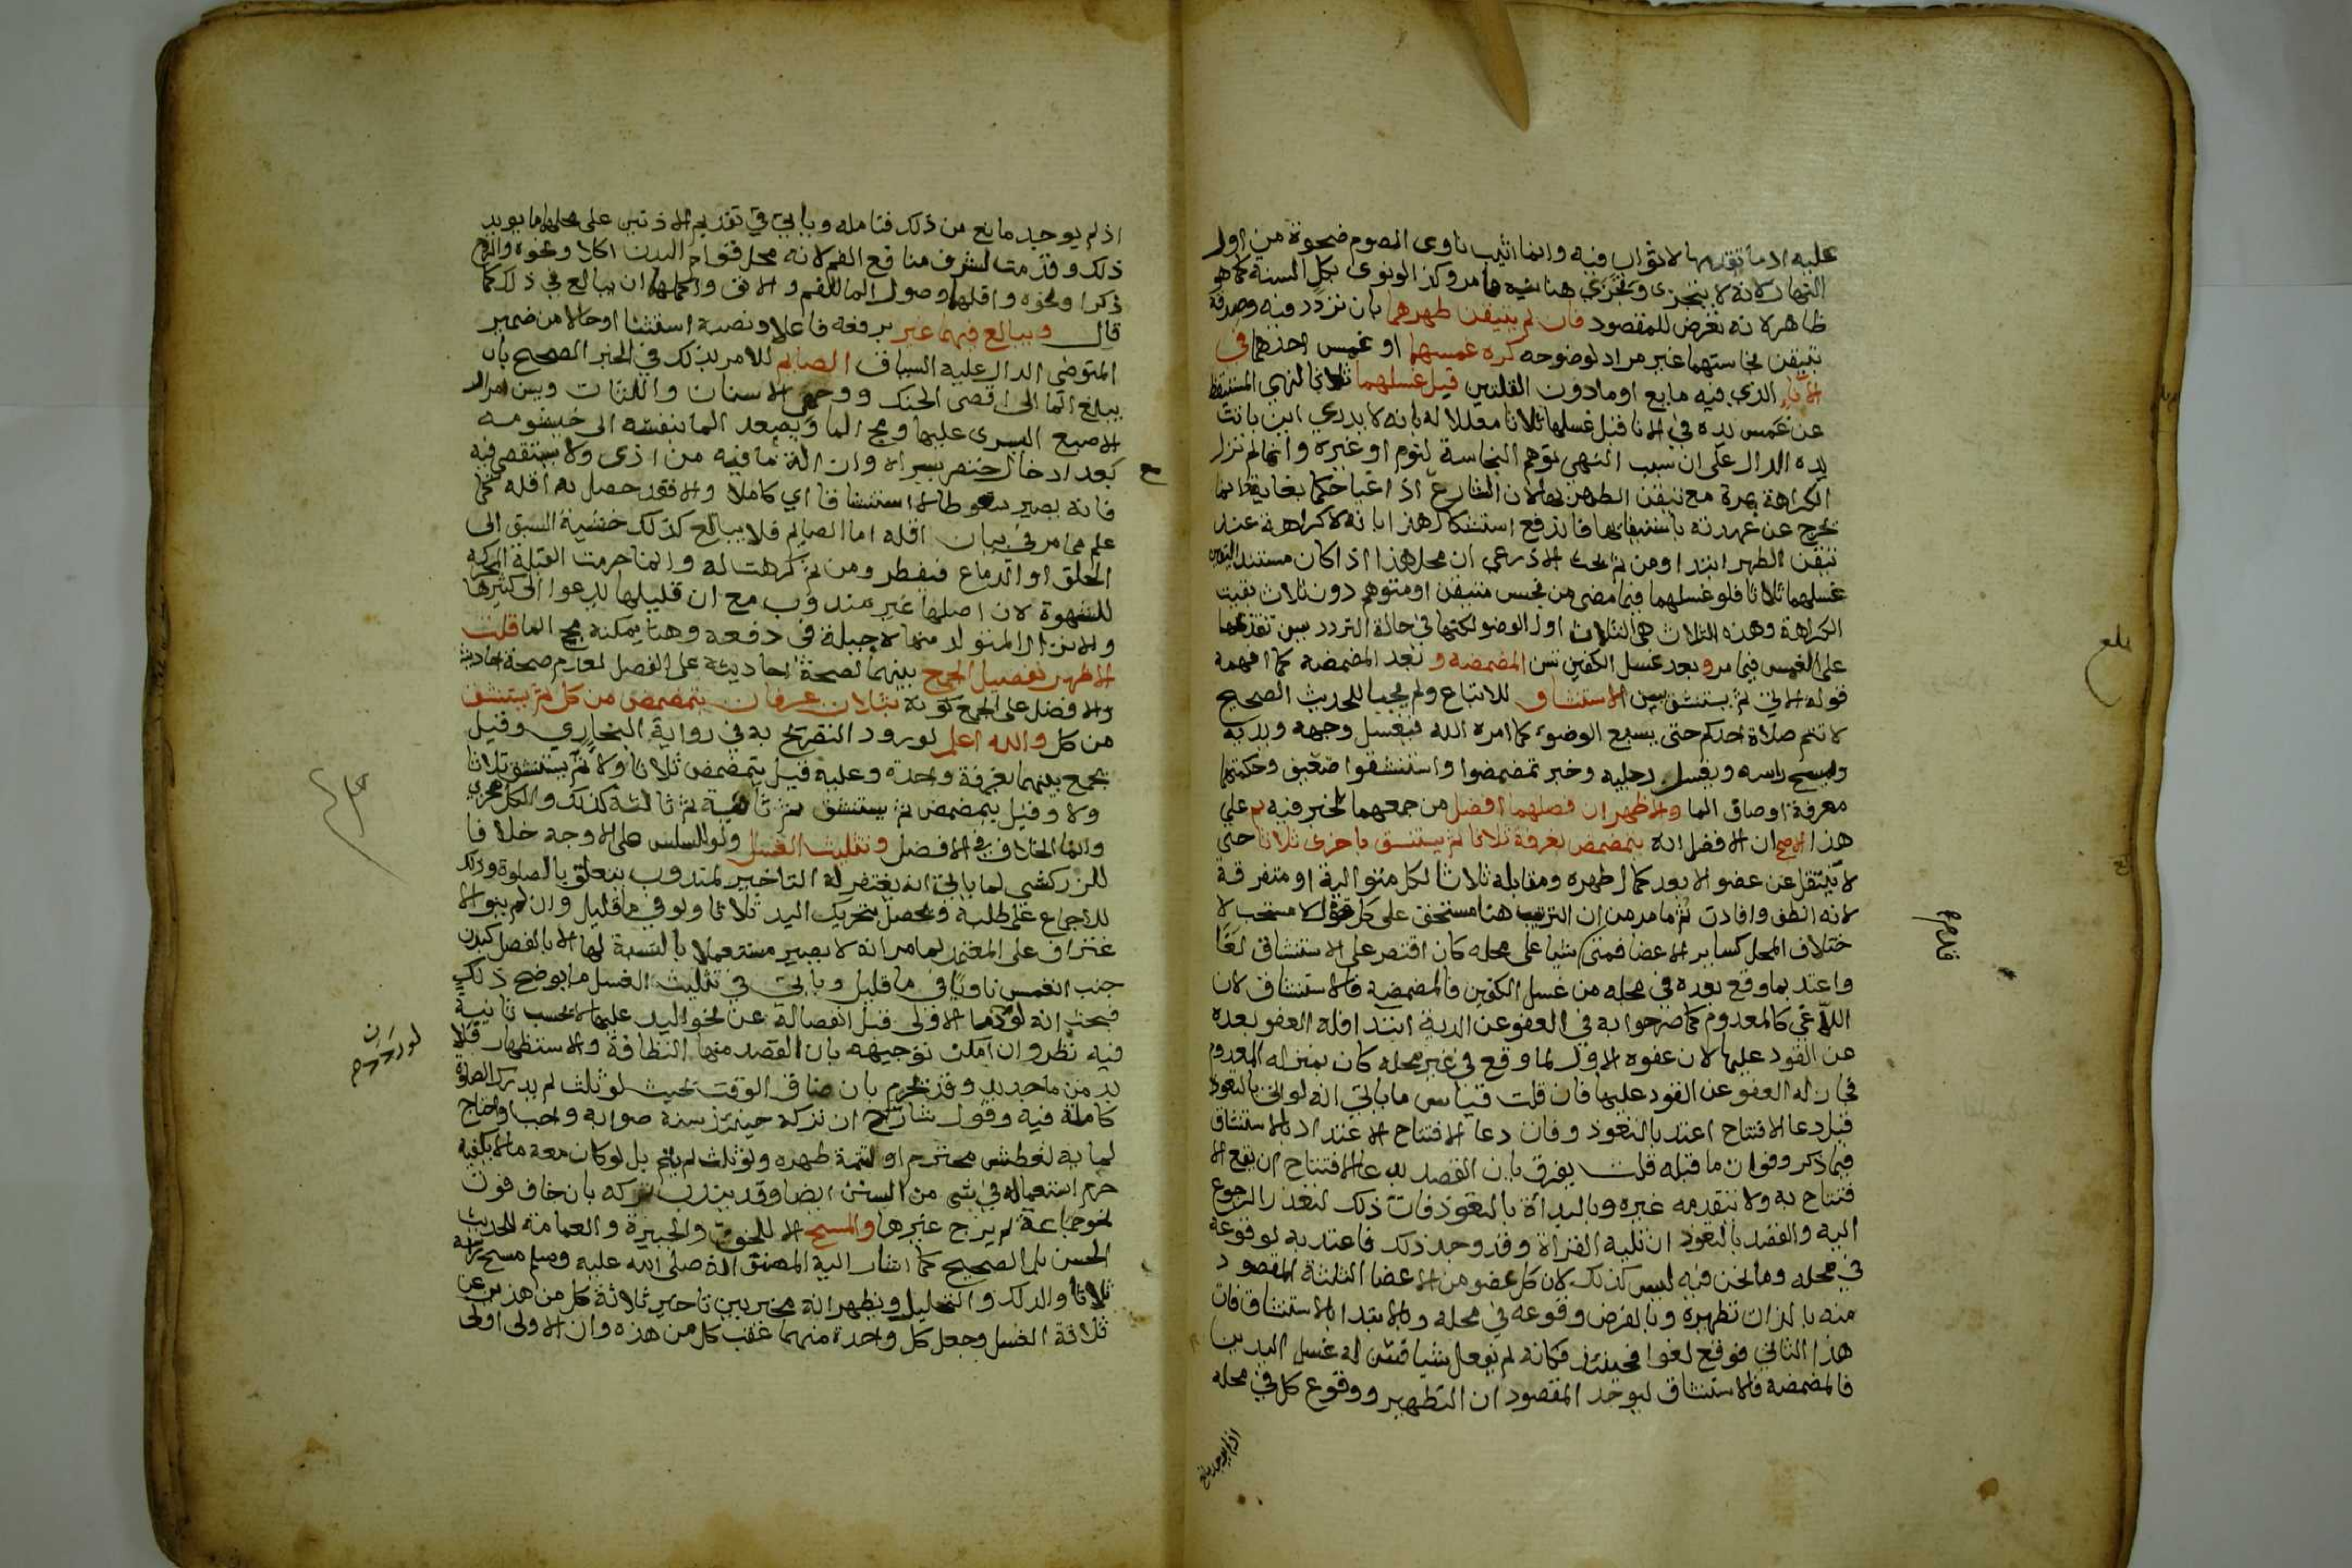 عليه اذ ما تقدمها لا ثواب فيه وانما اثيب ناوى الصوم ضحوة من اول
النهار لانه لا يتجزى وتجزى هنا نية ما مر وكذا لو نوى بكل السنة كما هو
ظاهر لانه تعرض للمقصود فان لم يتيقن طهرهما بان تردد فيه وصدقه
تيقن نجاستهما غير مراد لوضوحه كره غمسهما او غمس احدهما في
الاناء الذي فيه مايع او ما دون القلتين قبل غسلهما ثلاثا لنهي المستيقظ
عن غمس يده في الانا قبل غسلها ثلاثا معللا له بانه لا يدري اين باتت
يده الدال على ان سبب النهي توهم النجاسة لنوم او غيره وانما لم تزل
الكراهة بمرة مع تيقن الطهر بها لان الشارع اذا غيا حكما بغاية فانما
يخرج عن عهدته باستيفائها فاندفع استشكال هذا بانه لا كراهة عند
تيقن الطهر ابتدا ومن ثم بحث الاذرعي ان محل هذا اذا كان مستند اليقين
غسلهما ثلاثا فلو غسلهما فيما مضى من نجس متيقن او متوهم دون ثلاث بقيت
الكراهة وهذه الثلاث هي الثلاث اول الوضو لكنها في حالة التردد يسن تقديمها
على الغمس فيما مر وبعد غسل الكفين تسن المضمضه و بعد المضمضه كما افهمه
قوله الاتي ثم يستنشق يسن الاستنشاق للاتباع ولم يجبا للحديث الصحيح
لا تتم صلاة احدكم حتى يسبغ الوضوء كما امره الله فيغسل وجهه ويديه
ويمسح راسه ويغسل رجليه وخبر تمضمضوا واستنشقوا ضعيف وحكمتهما
معرفة اوصاف الما والاظهر ان فصلهما افضل من جمعهما لخبر فيه ثم على
هذا الاصح ان الافضل انه يتمضمض بغرفة ثلاثا ثم يستنشق باخرى ثلاثا حتى
لا ينتقل عن عضو الا بعد كمال طهره ومقابله ثلاثا لكل متوالية او متفرقة
لانه انظف وافادت ثم ما مر من ان الترتيب هنا مستحق على كل قول لا مستحب لا
ختلاف المحل كساير الاعضا فمتى شيا على محله كان اقتصر على الاستنشاق لغا
واعتد بما وقع بعده في محله من غسل الكفين فالمضمضة فالاستنشاق لان
اللاغي كالمعدوم كما صرحوا به في العفو عن الدية ابتدا فله العفو بعده
عن القود عليها لان عفوه الاول لما وقع في غير محله كان بمنزله المعدوم
فجاز له العفو عن القود عليها فان قلت قياس ما ياتي انه لو اتى بالتعوذ
قبل دعا الافتتاح اعتد بالتعوذ وفات دعا الافتتاح الاعتداد بالاستنشاق
فيما ذكر وفوات ما قبله قلت يفرق بان القصد بدعا الافتتاح ان يقع الا
فتتاح به ولا يتقدمه غيره وبالبدأة بالتعوذ فات ذلك لتعذر الرجوع
اليه والقصد بالتعوذ ان تليه القراة وقد وجد ذلك فاعتد به لوقوعه
في محله وما نحن فيه ليس كذلك لان كل عضو من الاعضا الثلثة المقصود
منه بالذات تطهيره وبالفرض وقوعه في محله وبالابتدا بالاستنشاق فات
هذا الثاني فوقع لغوا فحينئذ فكانه لم يفعل شيا فيسن له غسل اليدين
فالمضمضة فالاستنشاق ليوجد المقصودان التطهير ووقوع كل في محله
اذ لم يوجد مانع
بلغ
اذ لم يوجد مانع من ذلك فتامله وياتي في تقديم الاذنين على محلهما ما يويد
ذلك وقدمت لشرف منافع الفم لانه محل قوام البدن اكلا ونحوه والروح
ذكرا ونحوه واقلها وصول الما للفم والانف واكملها ان يبالغ في ذلك كما
قال ويبالغ فيهما غير برفعه فاعلا ونصبه استثنا او حالا من ضمير
المتوضي الدال عليه السياق الصايم للامر بذلك في الخبر الصحيح بان
يبلغ الما الى اقصى الحنك ووجهي الاسنان واللثات ويسن امرار
الاصبع اليسرى عليها ومج الما ويصعد الما بنفسه الى خيشومه
بعد ادخال خنصر يسراه وازالة ما فيه من اذى ولا يستقصي فيه
فانه يصير سعوطا لا استنشاقا اي كاملا والا فقد حصل به اقله كما
علم مما مر في بيان اقله اما الصايم فلا يبالغ كذلك خشية السبق الى
الحلق او الدماغ فيفطر ومن ثم كرهت له وانما حرمت القبلة المحركه
للشهوة لان اصلها غير مندوب مع ان قليلها يدعوا الى كثيرها
والانزال المتولد منها لا حيلة في دفعه وهنا يمكنه مج الما قلت
الاظهر تفضيل الجمع بينهما لصحة احاديثه على الفصل لعدم صحة احاديثه
والافضل على الجمع كونه بثلاث غرفات يتمضمض من كل ثم يستنشق
من كل والله اعلم لورود التصريح به في رواية البخاري وقيل
يجمع بينهما بغرفة واحدة وعليه قيل يتمضمض ثلاثا ولا ثم يستنشق ثلاثا
ولا وقيل يتمضمض ثم يستنشق ثم ثانية ثم ثالثة كذلك والكل مجزي
وانما الخلاف في الافضل وتثليث الغسل ولو للسلس على الاوجه خلافا
للزركشي لما ياتي انه يغتفر له التاخير لمندوب يتعلق بالصلوة وذلك
للاجماع على طلبه ويحصل بتحريك اليد ثلاثا ولو في ما قليل وان لم ينو الا
غتراف على المعتمد لما مر انه لا يصير مستعملا بالنسبة لها الا بالفصل كبدن
جنب انغمس ناويا في ما قليل وياتي في تثليث الغسل ما يوضح ذلك
فبحث انه لو ردد ما الاولى قبل انفصاله عن نحو اليد عليها لا تحسب ثانية
فيه نظر وان امكن توجيهه بان القصد منها النظافة والاستظهار فلا
بد من ما جديد وقد يحرم بان ضاق الوقت بحيث لو ثلث لم يدرك الصلوة
كاملة فيه وقول شارح ان تركه حينئذ سنة صوابه واجب او احتاج
لما به لعطش محترم او لتتمة طهره ولو ثلث لم يتم بل لو كان معه ما لا يكفيه
حرم استعماله في شي من السنن ايضا وقد يندب تركه بان خاف فوت
نحو جماعة لم يرج غيرها والمسح الا للخف والجبيرة والعمامة للحديث
الحسن بل الصحيح كما اشار اليه المصنف انه صلى الله عليه وسلم مسح راسه
ثلاثا والدلك والتخليل ويظهر انه مخير بين تاخير ثلاثة كل من هذين عن
ثلاثة الغسل وجعل كل واحدة منهما عقب كل من هذه وان الاولى اولى